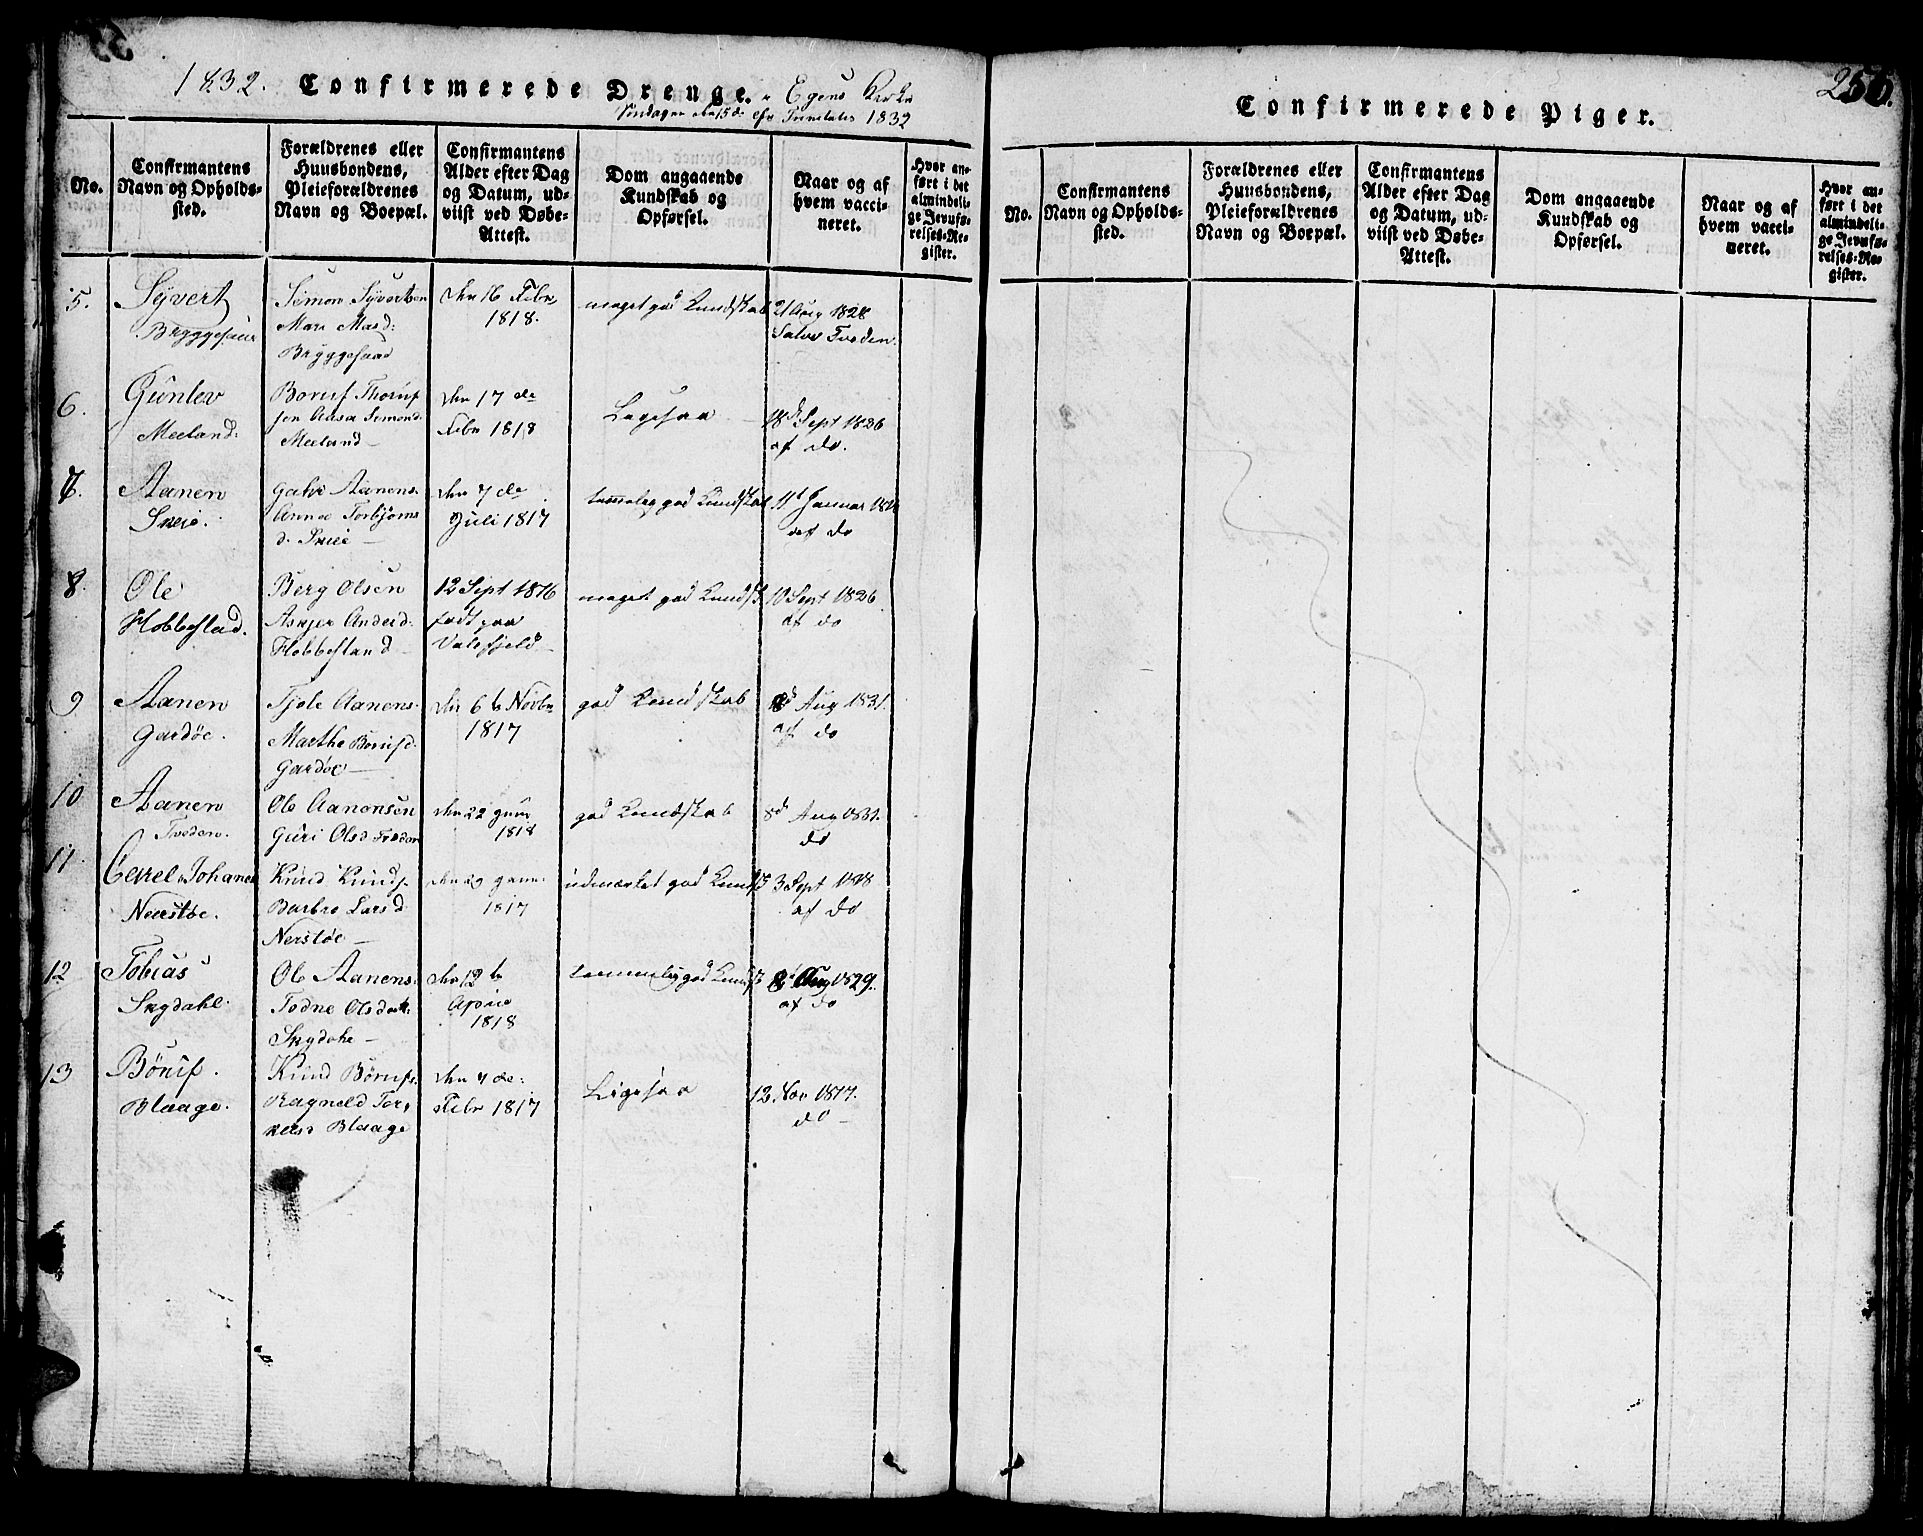 1832. Confirmerede Drenge. i Egens Kirke
Søndagen den 15de efter Trinitatis 1832
No.
Confirmantens Navn og Opholds-
sted.
Forældrenes eller
Huusbondens,
Pleieforældrenes
Navn og Boepæl.
Confirmantens
Alder efter Dag
og Datum, ud-
viist ved Døbe-
Attest.
Dom angaaende
Kundskab og
Opførsel.
Naar og af
hvem vacci-
neret.
Hvor an-
ført i det
almindeli-
ge Jevnfø-
relses-Re-
gister.
5.
Syvert
Bryggesaae
Simon Syvertsen
Mari Mas d:
Bryggesaae
den 16 Febr
1818.
meget god Kundskab
21 Aug 1828
Salve Tveden.
6.
Gunlev
Meeland.
Boruf Thoruf
sen Aasa Simond
Meeland
den 17 de
Febr 1818
Ligesaa
18d Sept 1826
af do.
7.
Aanen
Sneie.
Aanens.
Anne Torbjørns
d. Sneie
den 7 de
Juli 1817
temmelig god Kundskab
11t Januar
af do
8.
Ole
Hobbestad.
Berg Olsen
Anders d.
Hobbestand
12 Sept 1816
født paa
meget god Kundsk
10 Sept 1826
af do
9
Aanen
Gardøe.
Tjøle Aanens.
Marthe Borufsd.
Gardøe
den 6 te Novbr
1817
god Kundskab
8d Aug 1831.
af do
10
Aanen
Tveden.
Ole Aanensen
Guri Olsd Tveden
den 22 Juni
1818
god Kundskab
8d Aug 1831.
do
11
Carel Johanes
Neerstøe.
Knud Knuds.
Barbro Lars d
Nerstøe
1817
udmærket god Kundsk
3 Sept 1818
af do
12
Tobias
Skydahl.
Ole Aanens.
Todne Olsdat.
Skydahe
den 12 te
April
1818
temmelig god Kundsk
8d Aug 1829.
af do
13
Børuf.
Blaage.
Knud Børufs.
Ragneld Ter-
Blaage
den 7 de:
Febr 1817
Ligesaa
12 Nov 1817.
do
255.
Confirmerede Piger.
No.
Confirmantens
Navn og Opholds-
sted.
Forældrenes eller
Huusbondens,
Pleieforældrenes
Navn og Boepæl.
Confirmantens
Alder efter Dag
og Datum, ud-
viist ved Døbe-
Attest.
Dom angaaende
Kundskab og
Opførsel.
Naar og af
hvem vacci-
neret.
Hvor an-
ført i det
almindeli-
ge Jevnfø-
relses-Re-
gister.